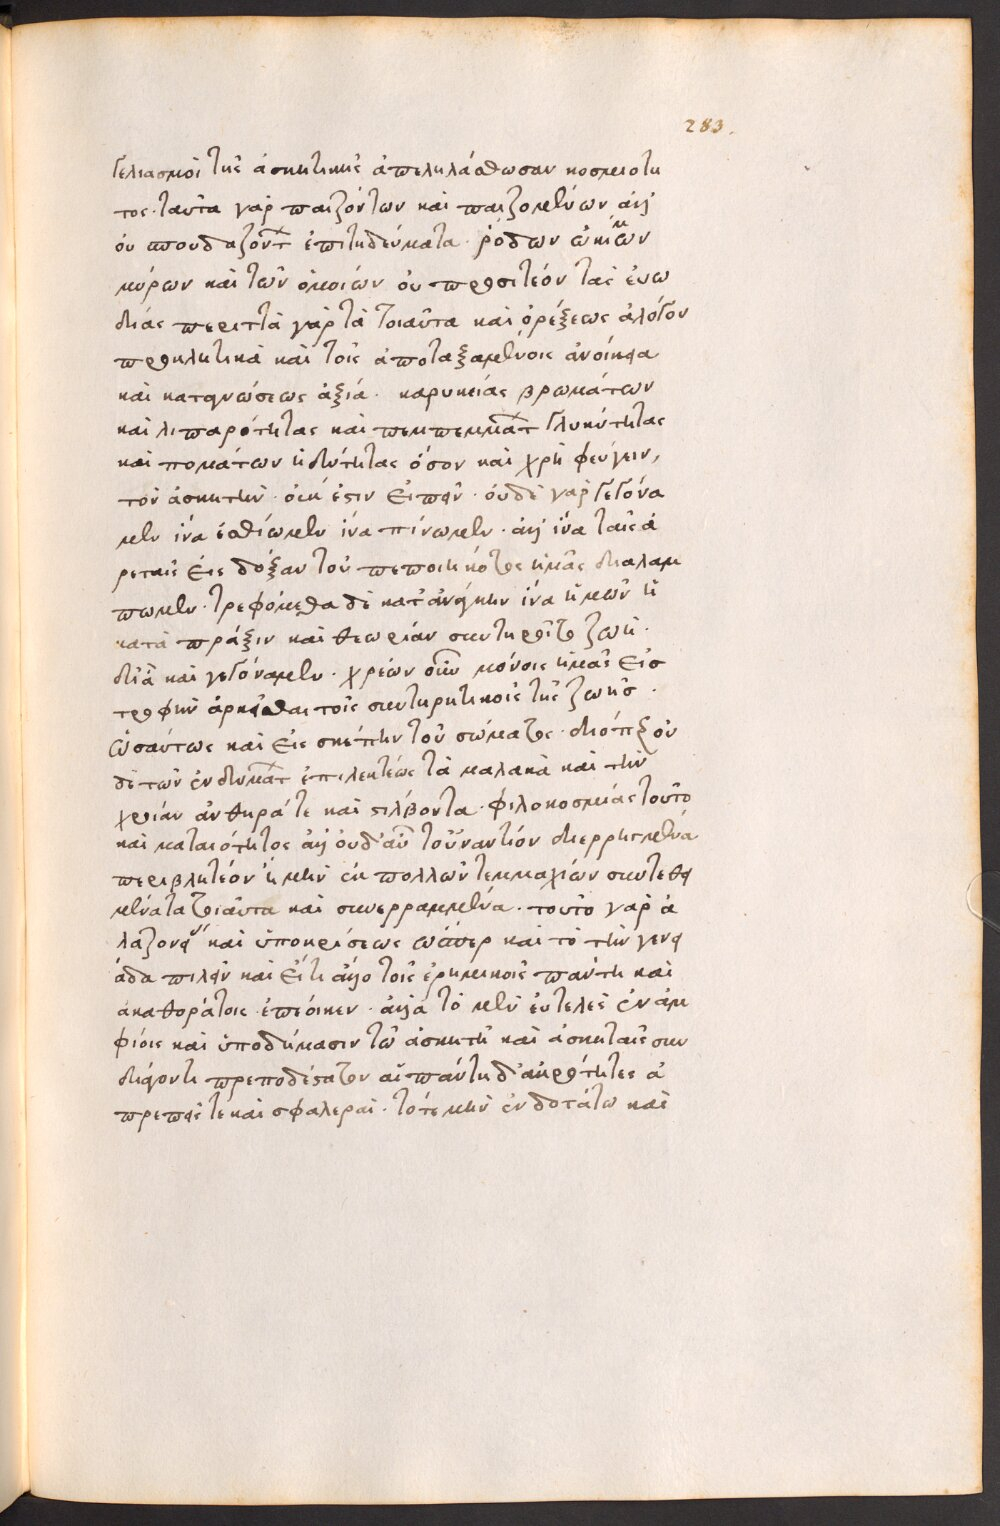 283.
γελιασμοὶ τῆς ἀσκητικῆς ἀπεληλάσθωσαν κοσμιοτη
τος. ταῦτα γὰρ παιζόντων καὶ παιζομένων ἀλλ'
οὐ σπουδαζόντ ἐπιτηδεύματα. ῥόδων ὠκίμων
μύρων καὶ τῶν ὁμοιών οὐ προσιτεόν τὰς ἐυω
διάς περιττὰ γὰρ τὰ τοιαῦτα καὶ ὀρέξεως ἀλόγου
προκλητικὰ καὶ τοῖς ἀποταξαμένοις ἀνοίκεια
καὶ καταγνώσεως ἀξιά. καρυκείας βρωμάτων
καὶ λιπαρότητας καὶ πεμμάτ γλυκύτητας
καὶ πομάτων ἡδύτητας ὅσον καὶ χρὴ φεύγειν,
τὸν ἀσκητὴν. οὐκ ἔστιν εἰπεῖν. οὐδὲ γὰρ γεγόνα
μεν ἵνα ἐσθίωμεν ἵνα πίνωμεν. ἀλλ' ἵνα ταῖς ἀ
ρεταῖς εἰς δόξαν τοῦ πεποιηκότος ἡμᾶς διαλαμ
πωμεν. τρεφόμεθα δὲ κατ' ἀνάγκην ἵνα ἡμῶν ἡ
κατὰ πρᾶξιν καὶ θεωρίαν συντηροῖτο ζωὴ.
δι' ἃ καὶ γεγόναμεν. χρεὼν οὖν μόνοις ἡμᾶς εἰσ
τροφὴν ἀρκεῖσθαι τοῖς συντηρητικοῖς τῆς ζωῆσ.
ὡσαύτως καὶ εἰς σκέπην τοῦ σώματος. διόπερ οὐ
δὲ τῶν ἐνδυμάτ ἐπιλεκτέως τὰ μαλακὰ καὶ τὴν
χροιάν ἀνθηρά τε καὶ στίλβοντα. φιλοκοσμίας τοῦτο
καὶ ματαιότητος ἀλλ' οὐδ' αὖ τοὐναντίον διερρηγμένα
περιβλητέον ἡμῖν ἐκ πολλῶν τεμμαχίων συντεθει
μένα τὰ τοιαῦτα καὶ συνερραμμένα. τοῦτο γὰρ ἀ
λαζονεί καὶ ὑποκρίσεως ὥσπερ καὶ τὸ τὴν γενει
άδα πιλεῖν καὶ εἴ τι ἄλλο τοῖς ἐρημικοῖς πάντη καὶ
ἀκαθοράτοις ἐπεόικεν. ἀλλὰ τὸ μὲν ἐυτελὲς ἐν ἀμ
φίοις καὶ ὑποδήμασιν τῷ ἀσκητῇ καὶ ἀσκηταῖς συν
διάγοντι πρεποδέστατον αἱ πάντη δ' ἀκρότητες ἀ
πρεπεῖς τε καὶ σφαλεραὶ. τότε μὴν ἐνδοτάτω καὶ